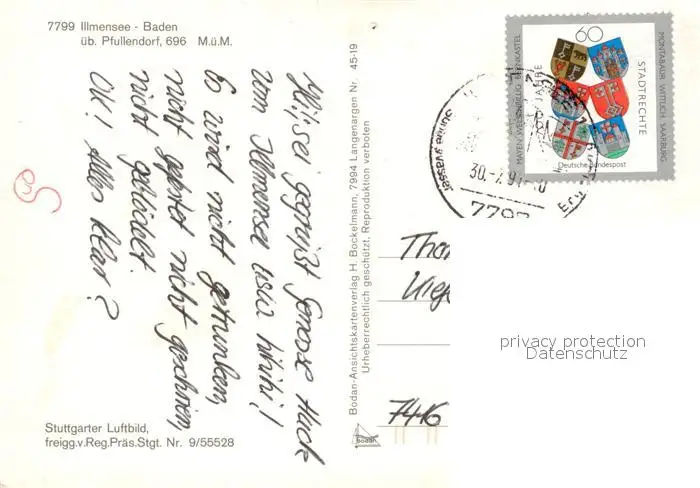 7799 Illmensee - Baden
üb. Pfullendorf, 696 M.ü.M.
Hi, sei gegrüßt Genosse Huck
vom Illmensee usw hihihi!
Es wird nicht getrunken,
nicht gefeiert nicht geschrien,
nicht
OK! Alles klar?
Stuttgarter Luftbild,
freigg.v.Reg.Präs.Stgt. Nr. 9/55528
Bodan-Ansichtskartenverlag H. Bockelmann, 7994 Langenargen Nr. 45-19
Urheberrechtlich geschützt, Reproduktion verboten
bodan
60
MAYEN WELSCHBILLIG BERNKASTEL
JAHRE
STADTRECHTE
MONTABAUR WITTLICH SAARBURG
Deutsche Bundespost
30.-7.91
7799
7416
privacy protection
Datenschutz